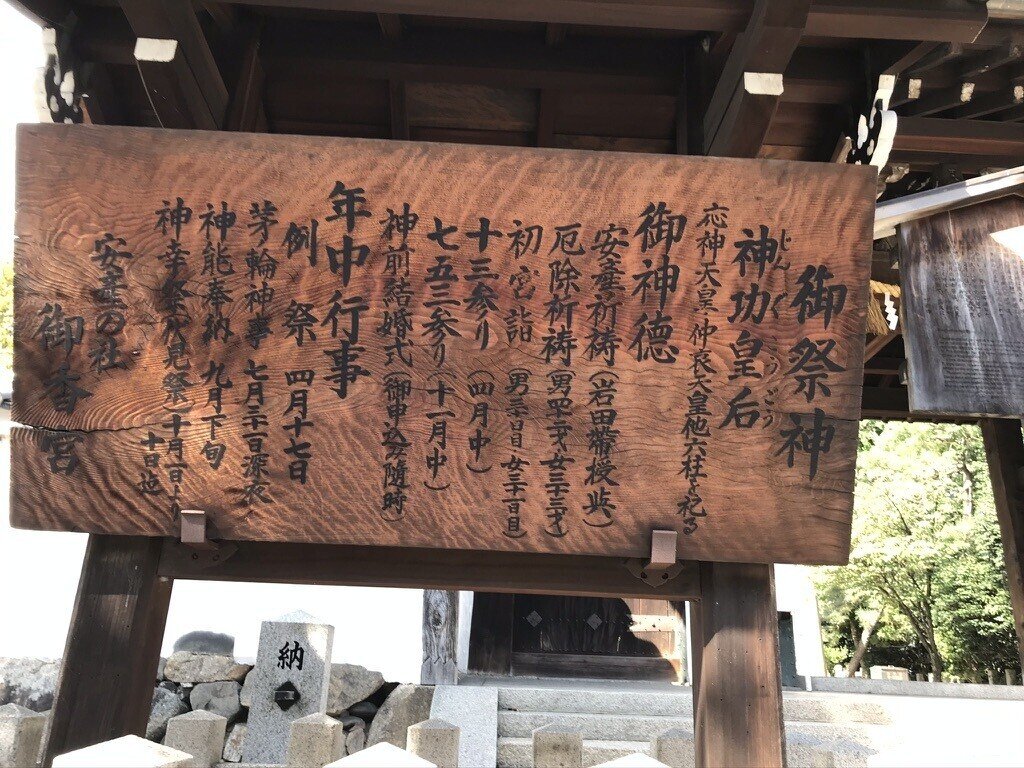 御祭神
神功皇后
じんぐうこうごう
応神天皇・仲哀天皇他六柱を祀る
御神徳
安産祈祷(岩田帯授与)
厄除祈祷(男四十二才・女三十三才)
初宮詣(男三十日目・女三十一日目)
十三参り(四月中)
七五三参り(十一月中)
神前結婚式(御申込み随時)
年中行事
例祭 四月十七日
茅の輪神事 七月三十一日深夜
神能奉納 九月下旬
神幸祭(伏見祭)十月一日より
十日迄
安産の社
御香宮
納